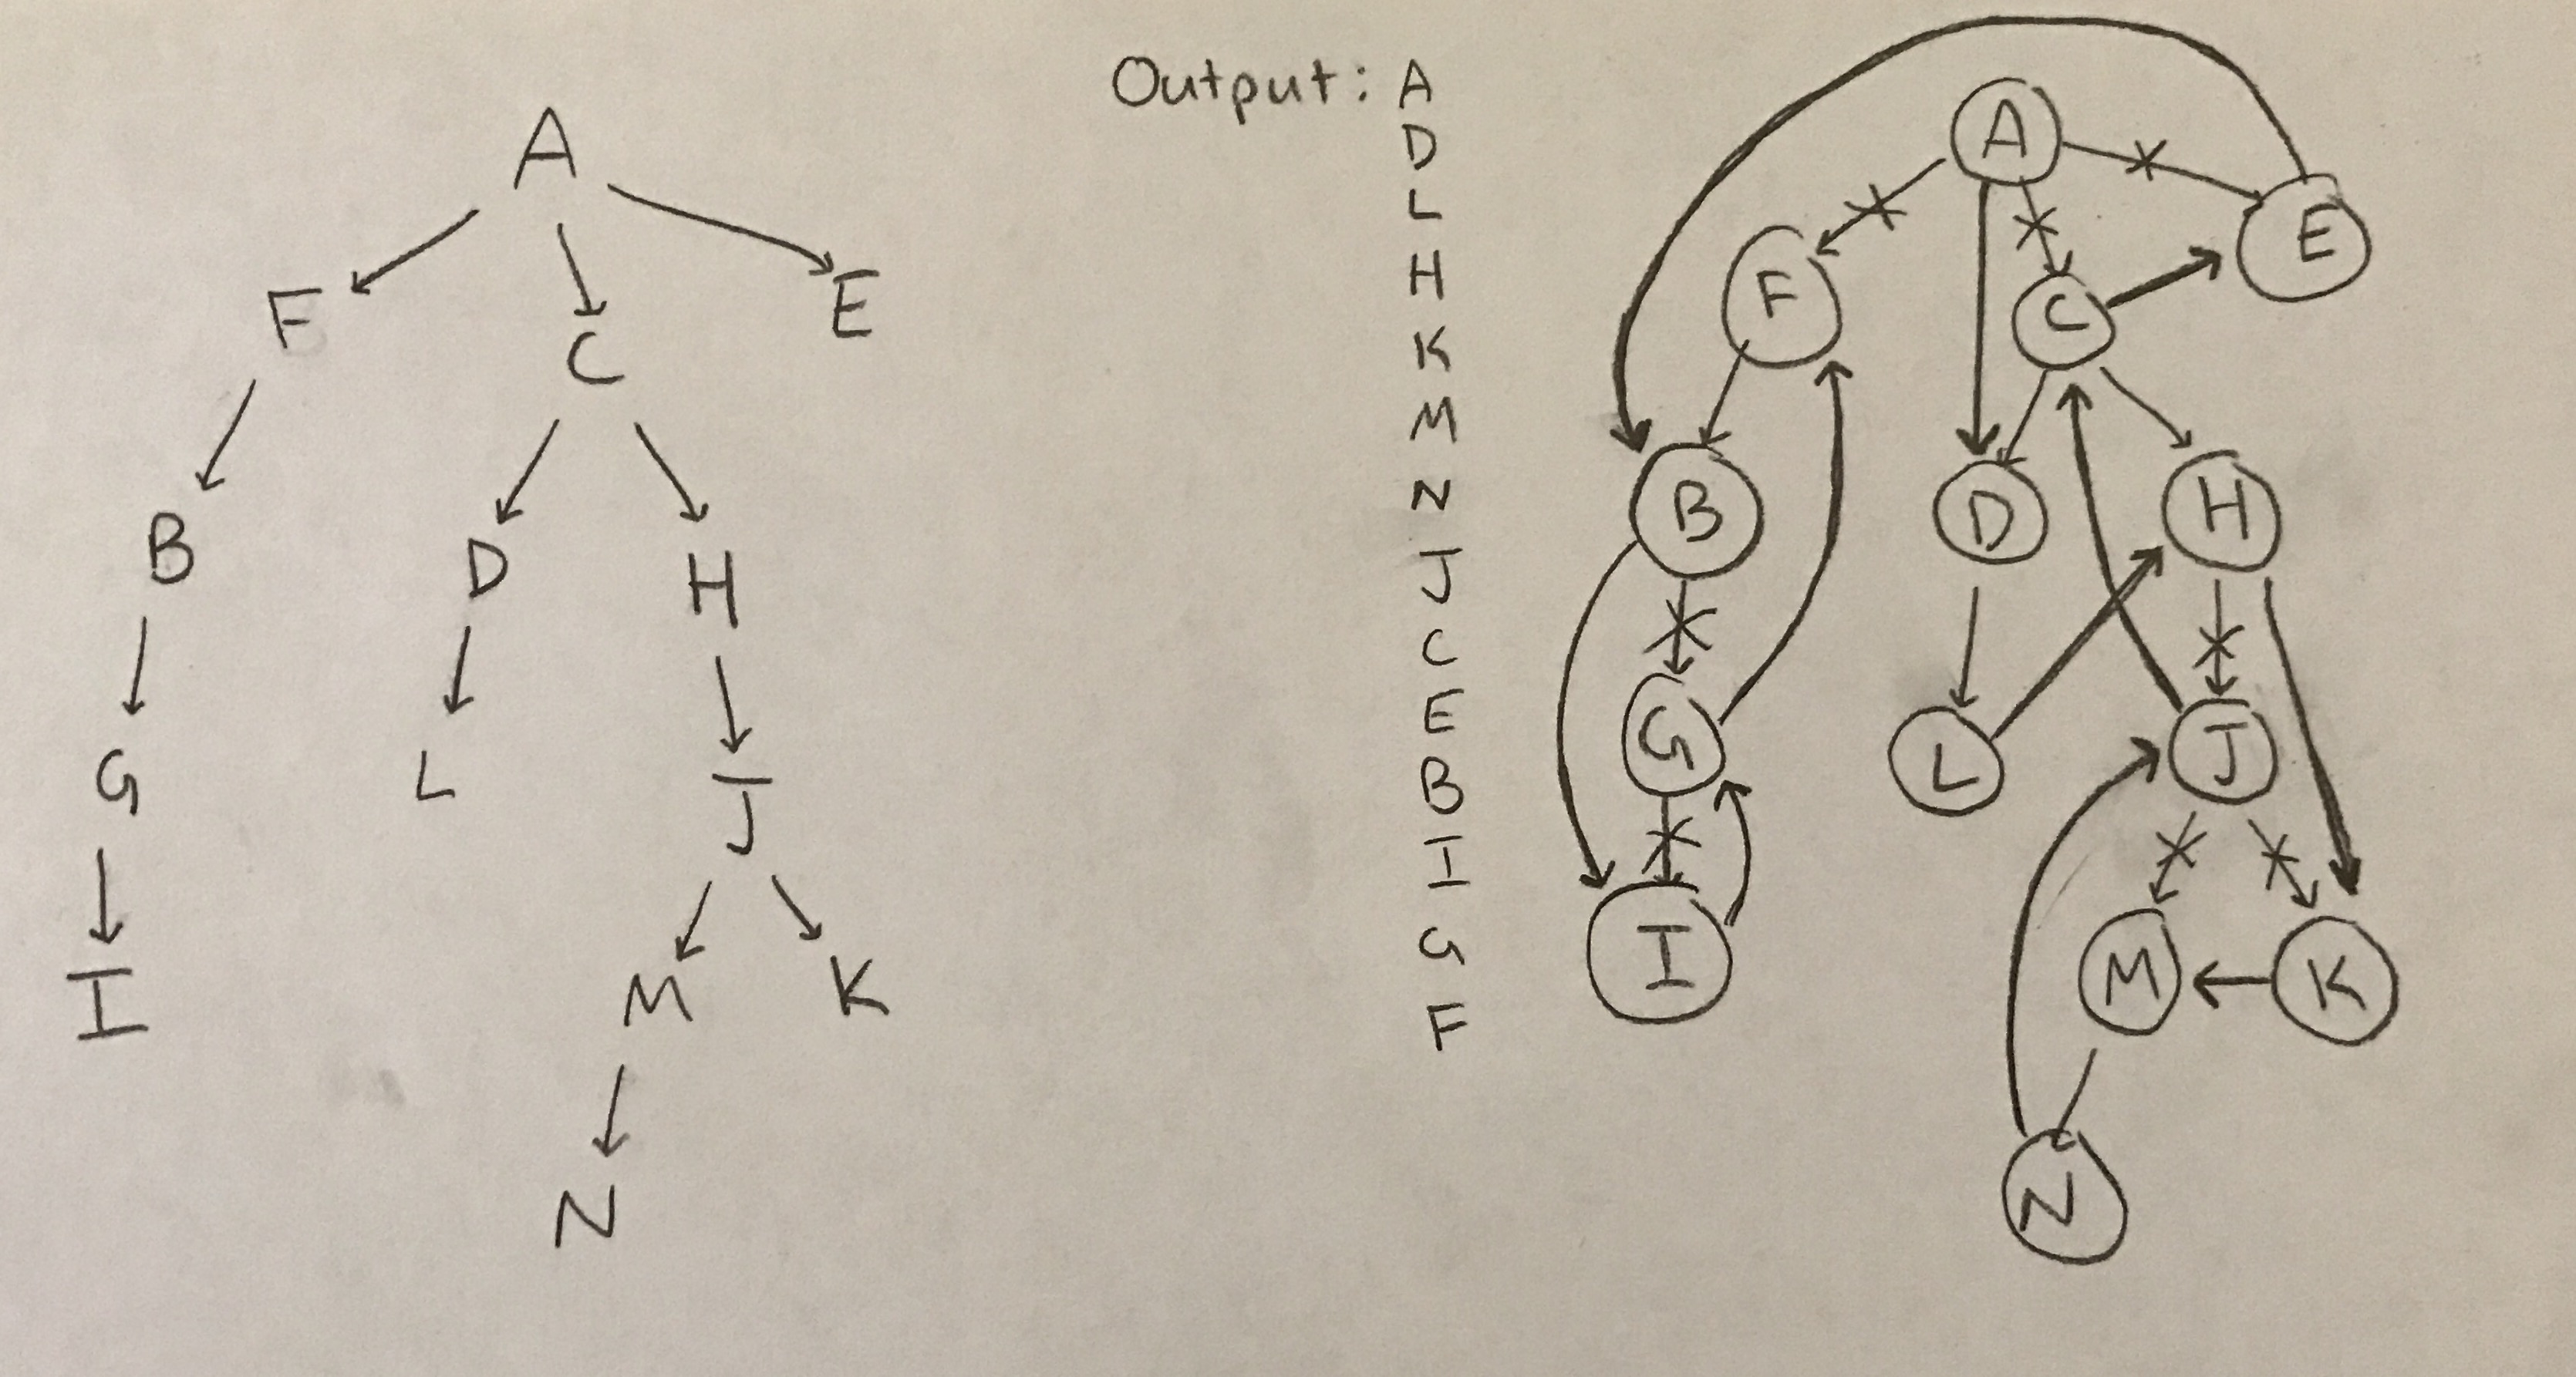 A
F
C
E
B
D
H
G
L
J
I
M
K
N
Output: A
D
L
H
K
M
N
J
C
E
B
I
G
F
A
E
F
C
B
D
H
G
L
J
I
M
K
N